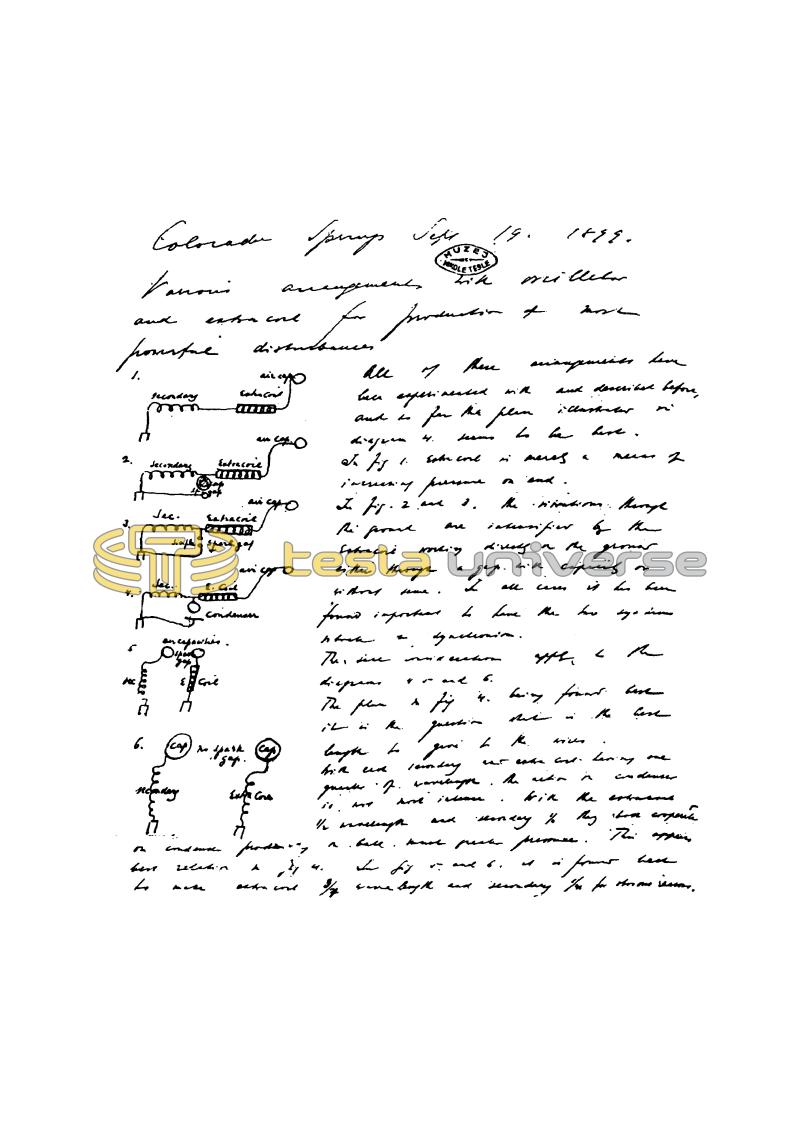 Colorado Springs Sept 19. 1899.
MUZEJ
NIKOLE TESLE
Various arrangements with oscillator
and extra coil for production of most
powerful disturbances
1.
air cap
secondary
Extra coil
All of these arrangements have
been experimented with and described before,
and so far the plan illustrated in
diagram 4. seems to be best.
2.
air cap
secondary
Extra coil
cap
gap
In fig 1. Extra coil is merely a means of
increasing pressure on end.
3.
air cap
Sec.
Extra coil
spark gap
In fig. 2 and 3. the vibrations through
the ground are intensified by the
Extra coil working directly on the ground
either through a gap with capacity or
without same. In all cases it has been
found important to have the two systems
in synchronism.
tesla universe
4.
air cap
Sec.
E. Coil
Condenser
The same consideration apply to the
diagrams 4 5 and 6.
The plan in fig 4. being found best
it is the question what is the best
length to give to the wires.
5
air capacities.
spark
gap
sec
E Coil
With each secondary and extra coil having one
quarter of wavelength the action on condenser
is not most intense. With the extra coil
1/2 wavelength and secondary 1/4 they both cooperate
on condenser producing in ball much greater pressure. This appears
best relation in fig 4. In fig 5 and 6. it is found best
to make extra coil 3/4 wave length and secondary 1/4 for obvious reasons.
6.
Cap
no spark
gap.
Cap
secondary
Extra Coil